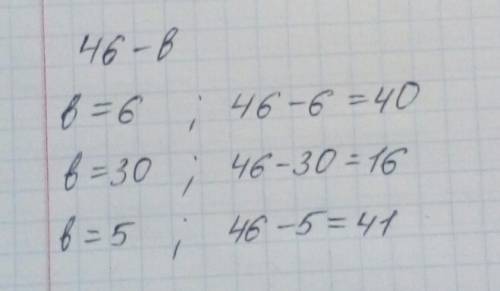 46 - в
в = 6 ; 46 - 6 = 40
в = 30 ; 46 - 30 = 16
в = 5 ; 46 - 5 = 41